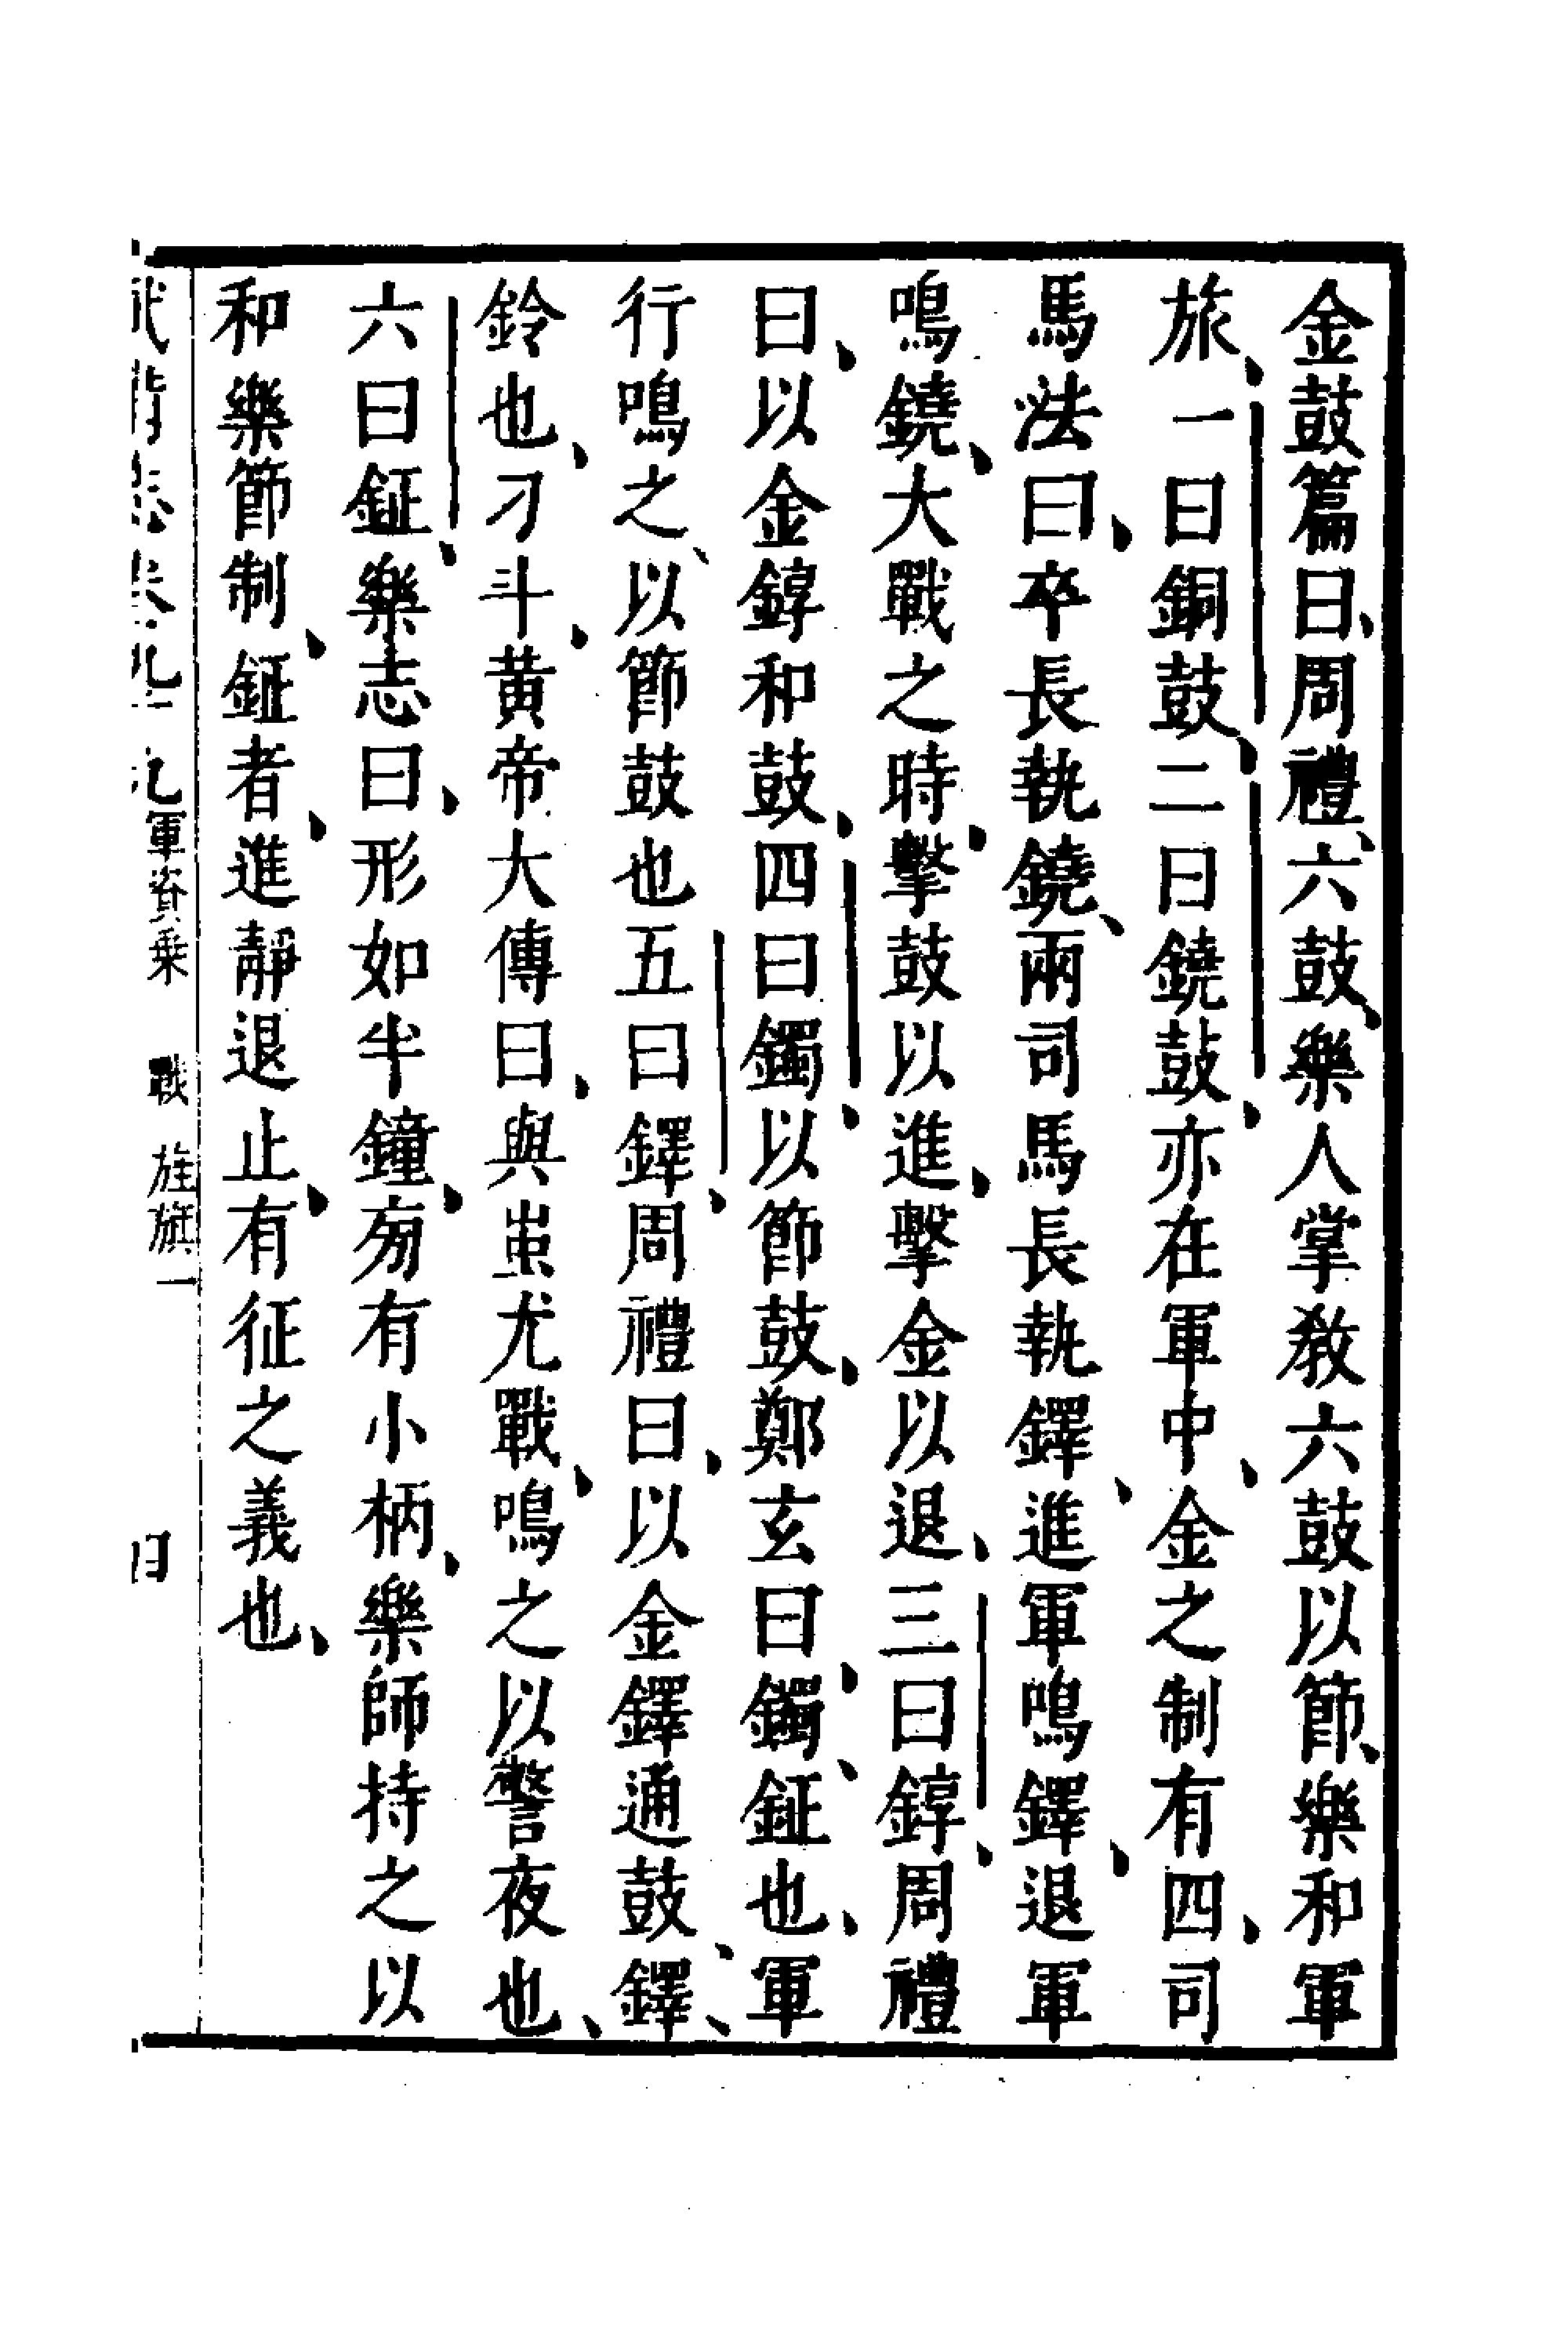 金鼓篇曰周禮六鼓樂人掌敎六鼓以節樂和軍
旅一曰銅鼓二曰鐃鼓亦在軍中金之制有四司
馬法曰卒長執鐃兩司馬長執鐸進軍鳴鐸退軍
鳴鐃大戰之時擊鼓以進擊金以退三曰錞周禮
曰以金錞和鼓四曰鐲以節鼓鄭玄曰鐲鉦也軍
行鳴之以節鼓也五曰鐸周禮曰以金鐸通鼓鐸
鈴也刁斗黄帝大傳曰與蚩尤戰鳴之以警夜也
六曰鉦樂志曰形如半鐘旁有小柄樂師持之以
和樂節制鉦者進靜退止有征之義也
武備志卷九十九 軍資乘 戰 旌旗一 四